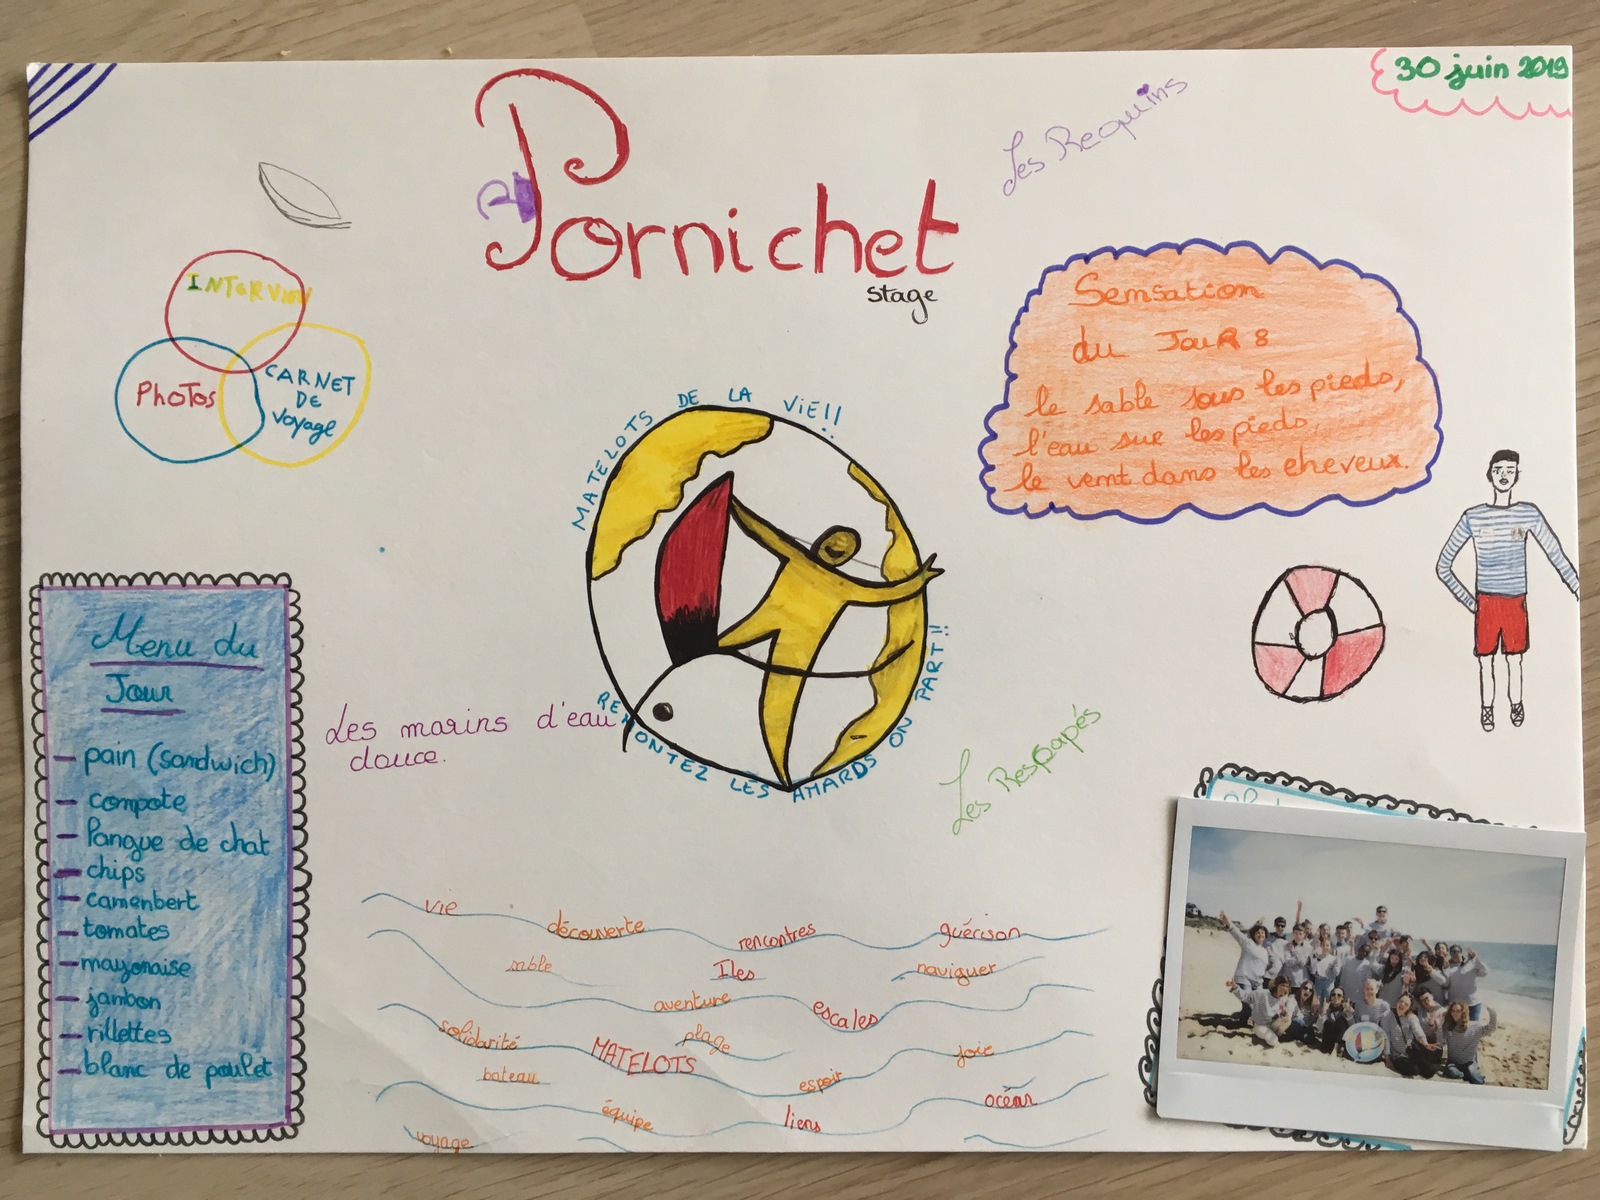 30 juin 2019
Les Requins
Pornichet
stage
INTERVIEW
PHOTOS
CARNET
DE
Voyage
Sensation
du JOUR 8
le sable sous les pieds,
l'eau sur les pieds,
le vent dans les cheveux.
MATELOTS DE LA VIE!!
REMONTEZ LES AMARDS ON PART!!
Menu du
Jour
- pain (sandwich)
- compote
- langue de chat
- chips
- camenbert
- tomates
- mayonaise
- jambon
- rillettes
- blanc de poulet
Les marins d'eau
douce.
Les Respapés
vie découverte rencontres guérison
sable Iles naviguer
aventure escales
solidarité MATELOTS plage joie
bateau espoir océan
équipe liens
voyage